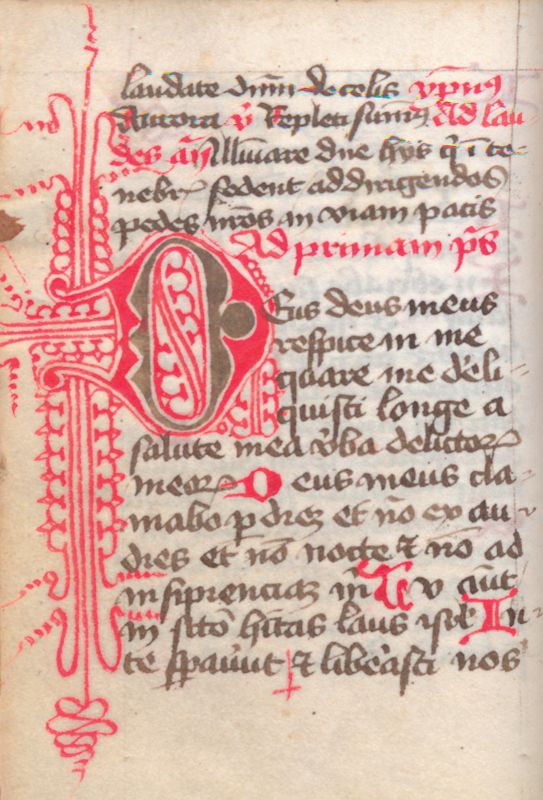 laudate dnm de celis ymnus
Aurora v Repleti sumus Ad lau
des an Illuminare dne hys qui in te
nebris sedent ad dirigendos
pedes nros in viam pacis
Ad primam ps
Deus deus meus
respice in me
quare me deli
quisti longe a
salute mea verba delictor
meor Deus meus cla
mabo per diem et no ex au
dies et no nocte et no ad
in sipienciam m Tu aut
in sco hitas laus isrl In
te speravut et liberasti nos